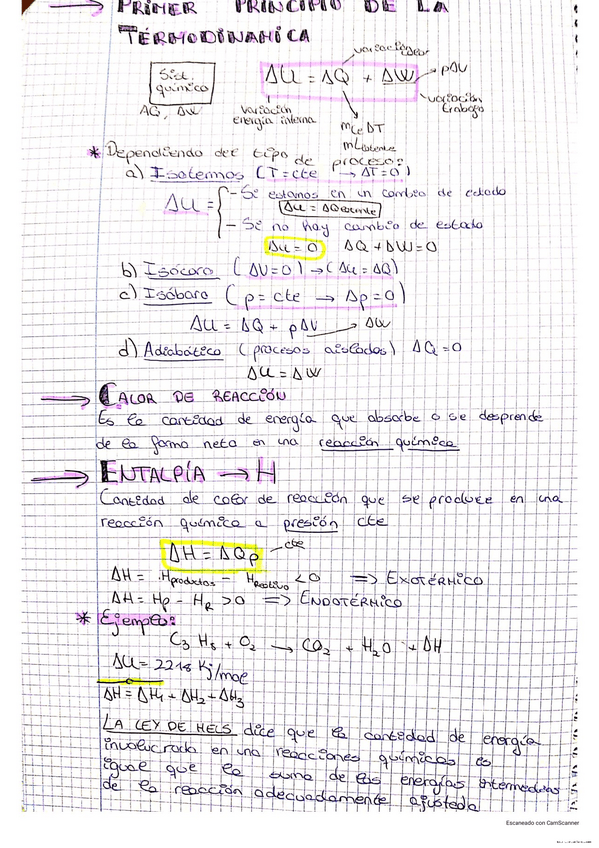 PRIMER PRINCIPIO DE LA
TERMODINAMICA
variación calor
Sist. químico
ΔU = ΔQ + ΔW → pΔV
ΔQ, ΔW
variación energía interna
variación trabajo
m Ce ΔT
m Llatente
* Dependiendo del tipo de proceso:
a) Isotermos (T = cte → ΔT = 0)
ΔU =
- Si estamos en un cambio de estado
ΔU = ΔQlatente
- Si no hay cambio de estado
ΔU = 0 ΔQ + ΔW = 0
b) Isócoro (ΔV = 0) → (ΔU = ΔQ)
c) Isóbaro (p = cte → Δp = 0)
ΔU = ΔQ + pΔV → ΔW
d) Adiabático (procesos aislados) ΔQ = 0
ΔU = ΔW
→ CALOR DE REACCIÓN
Es la cantidad de energía que absorbe o se desprende
de la forma neta en una reacción química
→ ENTALPÍA → H
Cantidad de calor de reacción que se produce en una
reacción química a presión cte
ΔH = ΔQp - cte
ΔH = Hproductos - HReactivo < 0 => EXOTÉRMICO
ΔH = Hp - HR > 0 => ENDOTÉRMICO
* Ejemplo:
C3 H8 + O2 → CO2 + H2O + ΔH
ΔU = 2218 Kj/mol
ΔH = ΔH1 + ΔH2 + ΔH3
LA LEY DE HELS dice que la cantidad de energía
involucrada en una reacciones químicas es
igual que la suma de las energías intermedias
de la reacción adecuadamente ajustada
Escaneado con CamScanner